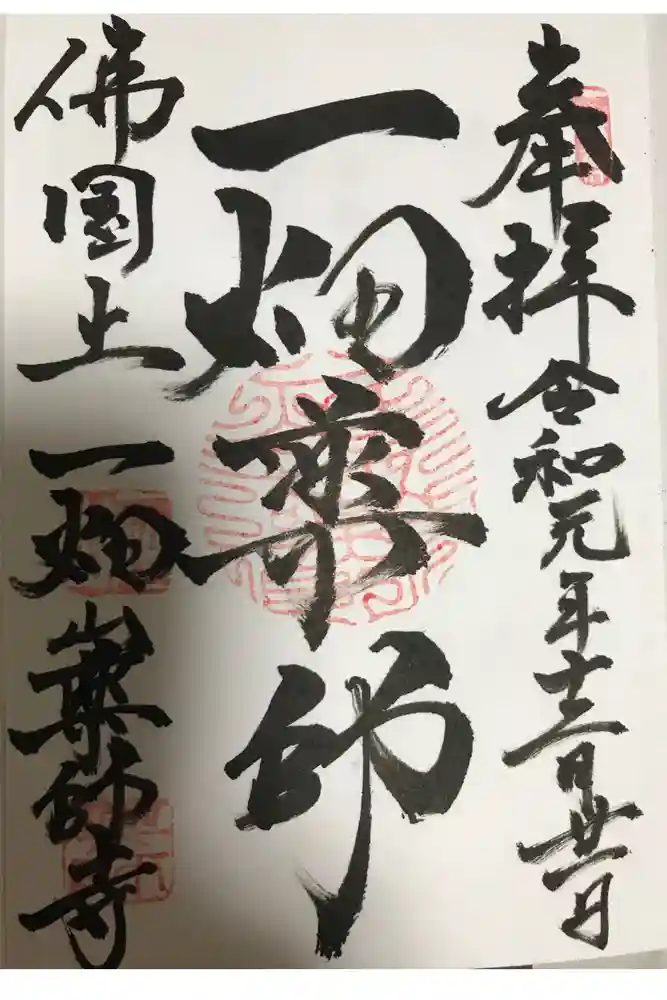 奉拝 令和元年十二月廿一日
一畑薬師
佛國土 一畑薬師寺